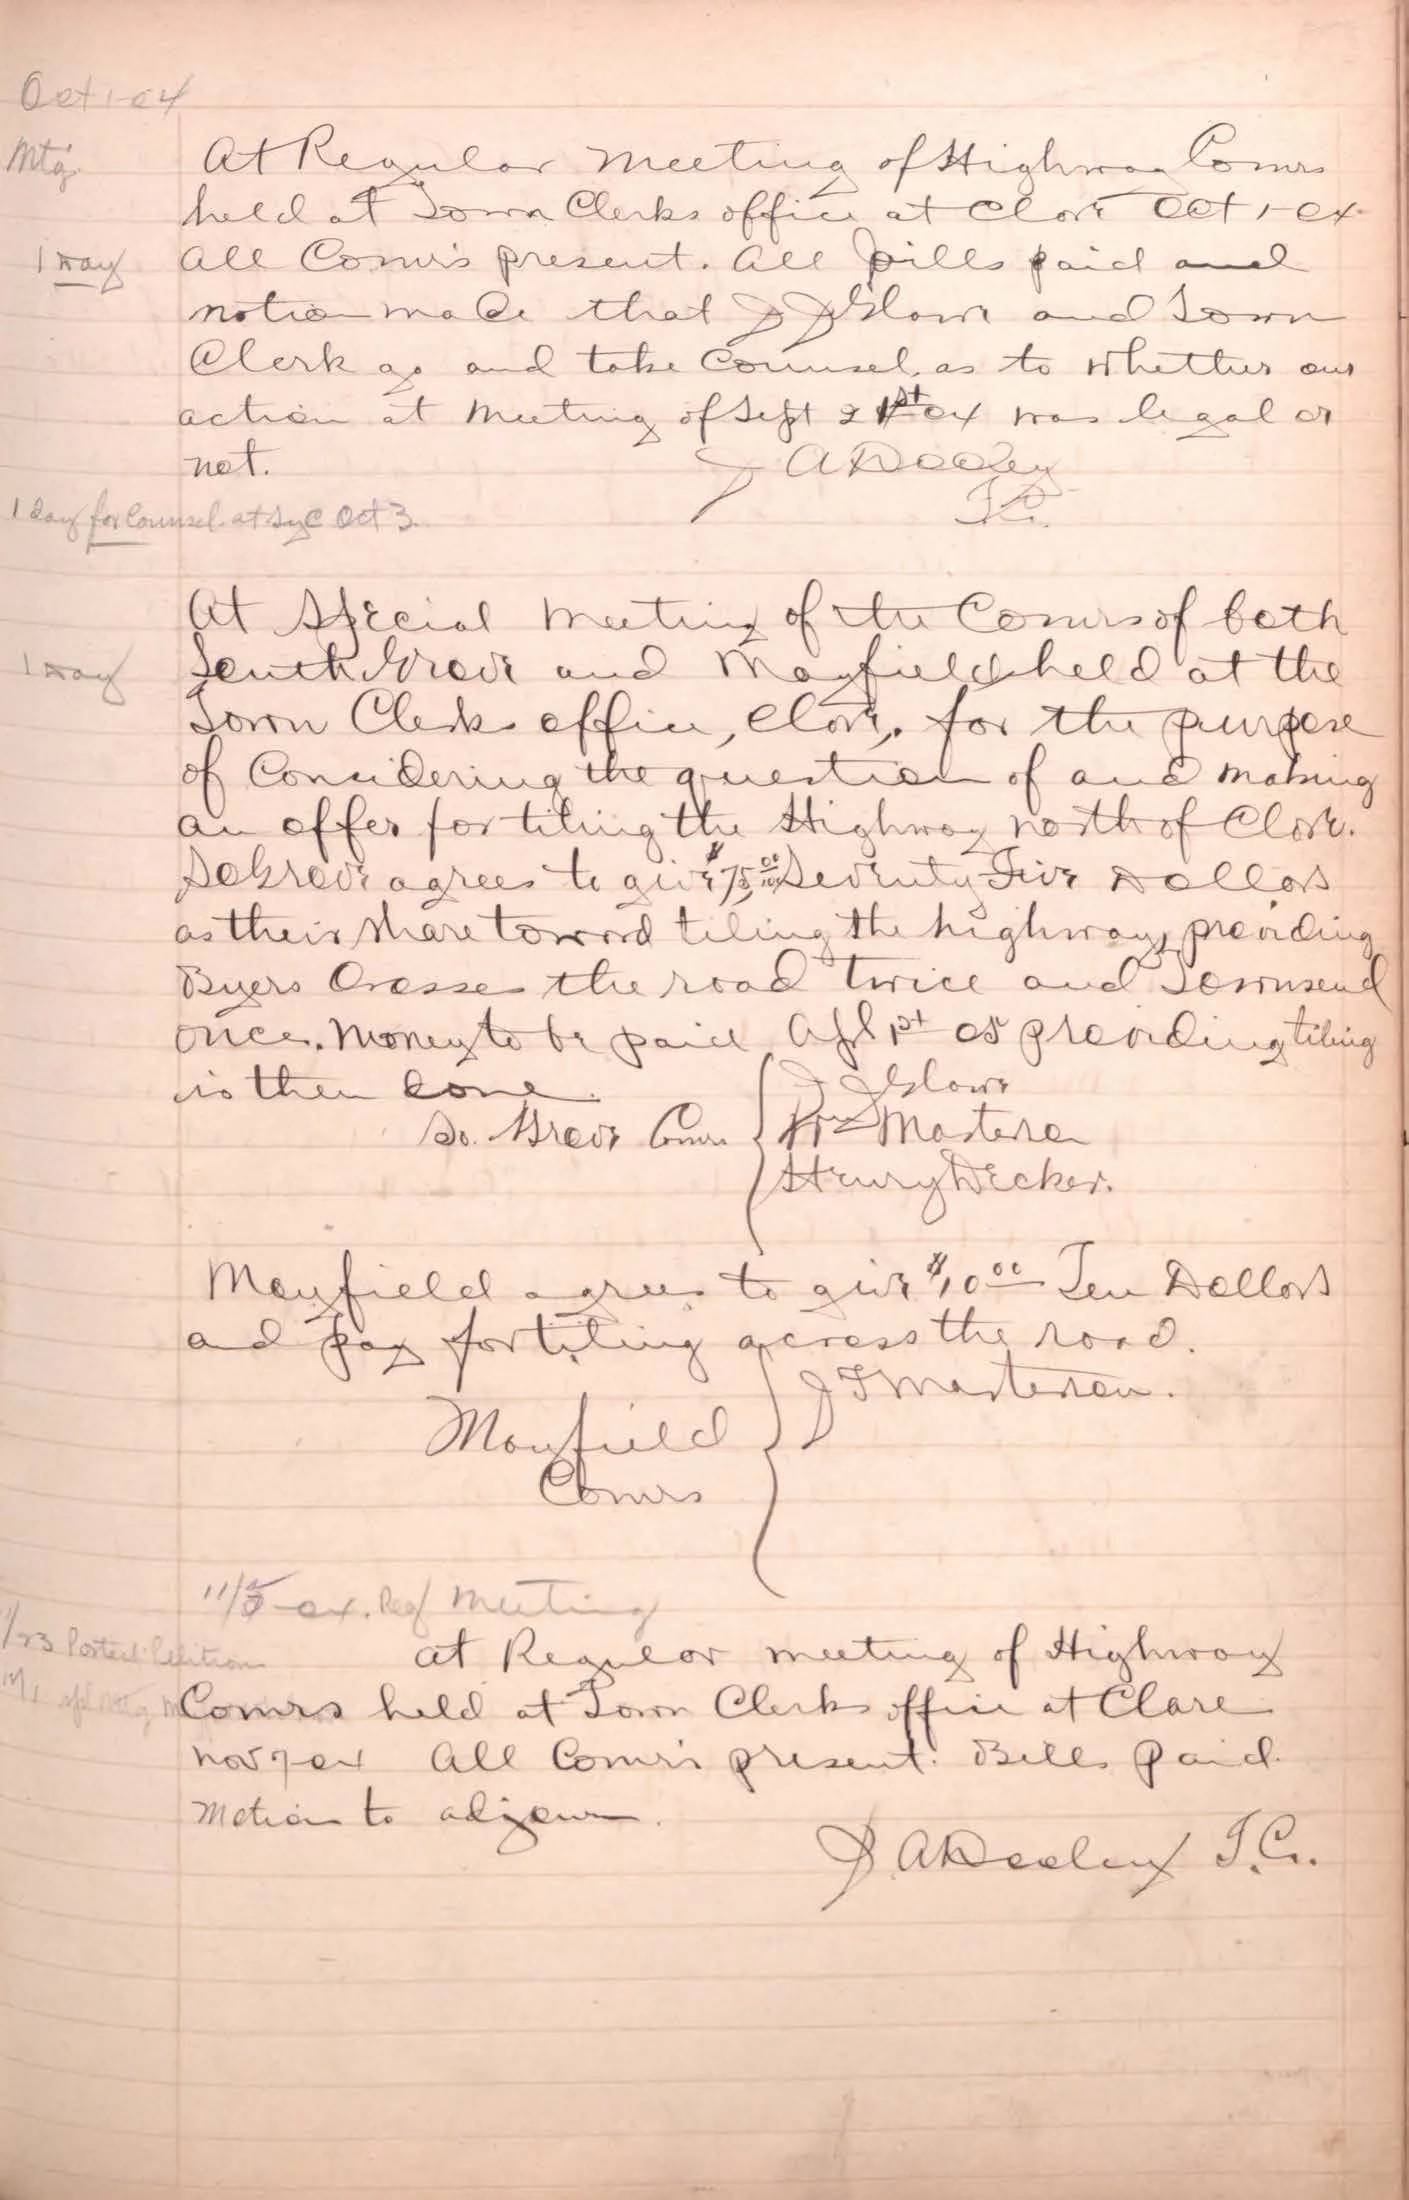 Oct 1-04
Mtg. At Regular Meeting of Highway Comrs
held at Town Clerks office at Clare Oct 1-04.
1 Day All Comrs present. All bills paid and
motion made that J J Glowe and Town
Clerk go and take counsel, as to whether our
action at Meeting of Sept 21st 04 was legal or
not. J A Dooley
T.C.
1 day for Counsel at Syc Oct 3
At Special Meeting of the Comrs of both
1 Day South Grove and Mayfield held at the
Town Clerks office, Clare, for the purpose
of Considering the question of and making
an offer for tiling the Highway north of Clare.
So Grove agrees to give $75.00/100 Seventy Five Dollars
as their share toward tiling the highway, providing
Byers Crosses the road twice and Townsend
once. Money to be paid Apl 1st 05 providing tiling
is then done. J J Glowe
So. Grove Comrs Wm Masterson
Henry Decker.
Mayfield agrees to give $10.00 Ten Dollars
and pay for tiling across the road.
J T Masterson.
Mayfield
Comrs
11/5-04. Reg Meeting
11/23 Posted Petition At Regular meeting of Highway
Comrs held at Town Clerks office at Clare
Nov 7-04 All Comrs present. Bills paid.
Motion to adjourn.
J. A Dooley T.C.